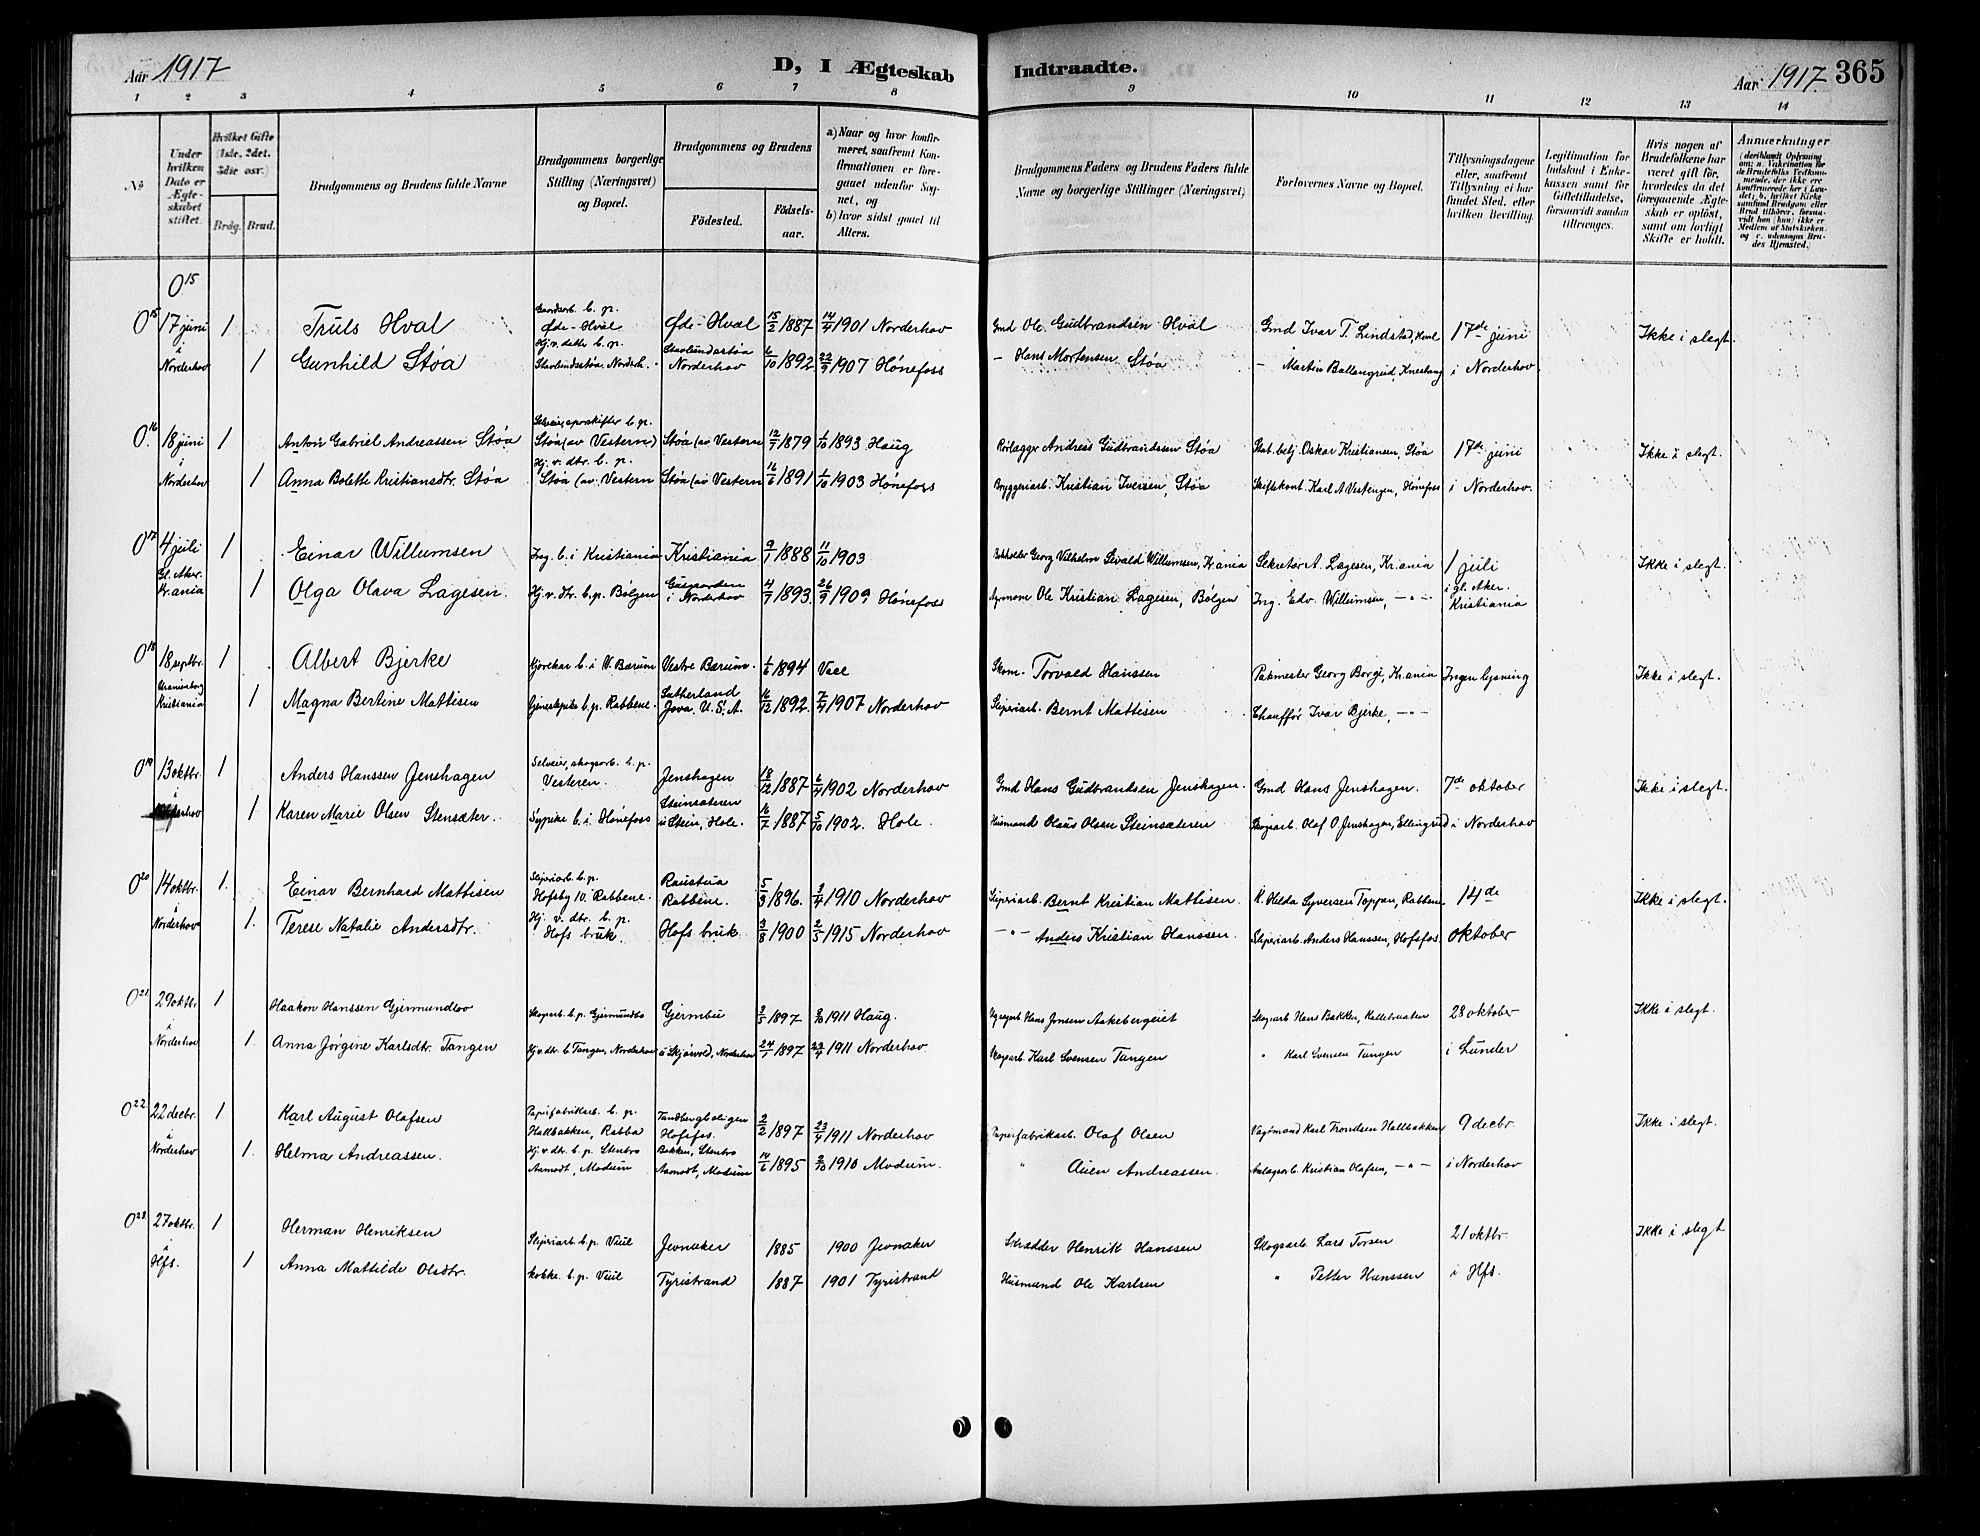 Aar 1917
D, I Ægteskab Indtraadte.
Aar 1917. 365
1 2 3 4 5 6 7 8 9 10 11 12 13 14
No
Under hvilken Dato er Ægteskabet stiftet.
Hvilket Gifte (1ste, 2det, 3die osv.)
Brdg. Brud.
Brudgommens og Brudens fulde Navne
Brudgommens borgerlige Stilling (Næringsvei) og Bopæl.
Brudgommens og Brudens
Fødested.
Fødselsaar.
a) Naar og hvor konfirmeret, saafremt Konfirmationen er foregaaet udenfor Sognet, og
b) hvor sidst gaaet til Alters.
Brudgommens Faders og Brudens Faders fulde Navne og borgerlige Stillinger (Næringsvei)
Forlovernes Navne og Bopæl.
Tillysningsdagene eller, saafremt Tillysning ei har fundet Sted, efter hvilken Bevilling.
Legitimation for Indskud i Enkekassen samt for Giftetilladelse, forsaavidt saadan tiltrænges.
Hvis nogen af Brudefolkene har været gift før, hvorledes da det foregaaende Ægteskab er opløst, samt om lovligt Skifte er holdt.
Anmærkninger
O 15
O 15 17 juni 1 Truls Hval Gaardsarb. b. p. Øde-Hval Øde-Hval 15/2 1887 14/4 1901 Norderhov Gmd Ole Gudbrandsen Hval Gmd Ivar T. Lindstad, Hval 17de juni Ikke i slegt
i Norderhov 1 Gunhild Støa Hj. v. datter b. p. Stavlundsstøa, Norderh. Stavlundsstøa Norderhov 6/10 1892 22/9 1907 Hønefoss - Hans Mortensen Støa - Martin Ballangrud, i Norderhov
O 16 18 juni 1 Anton Gabriel Andreassen Støa Støa (av Vestern) Støa (av Vestern 12/7 1879 1/10 1893 Haug Rørlægger Andreas Gudbrandssen Støa Stat. betj. Oskar Kristiansen, Støa 17de juni Ikke i slegt.
i Norderhov 1 Anna Bolette Kristiansdtr. Støa Hj. v. dtr. b. p. Støa (av Vestern Støa (av Vestern 16/6 1891 1/10 1903 Hønefoss Bryggeriarb. Kristian Iversen, Støa Karl A Vestengen, Hønefoss i Norderhov.
O 17 4 juli 1 Einar Willumsen Ing. b. i Kristiania Kristiania 9/1 1888 11/10 1903 Georg Vilhelm Sivald Willumsen, Kr.ania Sekretær A. Lagesen, Kr.ania 1 juli Ikke i slegt.
Gl. Aker. Kr.ania 1 Olga Olava Lagesen. Hj. v. dtr. b. p. Bølgen i Norderhov 4/7 1893. 26/9 1909 Hønefoss Ole Kristian Lagesen, Bølgen Ing. Edv. Willumsen, -"- i gl. Aker. Kristiania
O 18 18 septbr. 1 Albert Bjerke b. i V. Bærum Vestre Bærum. 1/6 1894 Skom. Torvald Hanssen Pakmester Georg Borge, Kr.ania Ingen lysning Ikke i slegt.
Uranienborg Kristiania 1 Magna Bertine Mattisen b. p. Rabbene. Sutherland Jova. U. S. A. 16/12 1892. 7/4 1907 Norderhov Sliperiarb. Bernt Mattisen Chauffør Ivar Bjerke, -"-
O 19 13 oktbr. 1 Anders Hanssen Jenshagen Selveier, skogsarb. b. p. Vesteren. Jenshagen 18/12 1887 6/4 1902 Norderhov Gmd Hans Gudbrandsen Jenshagen. Gmd Hans Jenshagen. 7de oktober Ikke i slegt.
1 Karen Marie Olsen Stensæter. Sypike b. i Hønefoss Steinsæteren u Stein, Hole. 16/7 1887 5/10 1902. Hole. Husmand Olaus Olsen Steinsæteren Skogsarb. Olaf O. Jenshagen, Ellingrud i Norderhov
O 20 14 oktbr. 1. Einar Bernhard Mattisen Sliperiarb. b. p. Hofsby 10. Rabbene. Raustua Rabbene. 5/3 1896. 3/4 1910 Norderhov Sliperiarb. Bernt Kristian Mattisen. Hilda Syversen Toppen, Rabben 14de Ikke i slegt.
i Norderhov 1. Terese Natalie Andersdtr. Hj. v. dtr. b. p. Hofs bruk. Hofs bruk 3/8 1900 2/5 1915 Norderhov -"- Anders Kristian Hanssen. Sliperiarb. Anders Hanssen, Hofsfos. oktober
O 21. 29 oktbr 1 Haakon Hanssen Gjermundbo Skogsarb. b. p. Gjermundbo Gjermbu 3/5 1897 1911 Haug. Hans Jonsen Aakebergeiet Skogsarb Hans Bakken, 28 oktober Ikke i slegt.
i Norderhov 1. Anna Jørgine Karlsdtr. Tangen Hj v. dtr. b. Tangen, Norderhov u Skjørvold, Norderhov 24/1 1897 23/4 1911 Norderhov. Skogsarb. Karl Svensen Tangen " Karl Svensen Tangen i Lunder
O 22. 22 decbr. 1 Karl August Olafsen Papirfabrikarb. b. p. Hallbakken, Rabba Tandbergboligen Hofsfos. 2/2 1897 23/4 1911 Norderhov Papirfabrikarb. Olaf Olsen Karl Trondsen Hallbakken 9 decbr. Ikke i slegt.
i Norderhov 1. Helma Andreassen. Hj. v. dtr. b. p. Stenbro Aamodt, Modum Bakken, Stenbro Aamodt, Modum 14/6 1895 2/10 1910 Modum. " Auen Andreassen. Anlægsarb. Kristian Olafsen, -"- i Norderhov
O 23. 27 oktbr. 1 Herman Henriksen Sliperiarb. b. p. Viul Jevnaker 1885 1900 Jevnaker Skrædder Henrik Hanssen Skogsarb. Lars Torsen 21 oktbr. Ikke i slegt
i Hfs. 1 Anna Mattilde Olsdtr. kokke. b. p. Viul Tyristrand 1887 1901 Tyristrand Husmand Ole Karlsen " Petter Hanssen i Hfs.